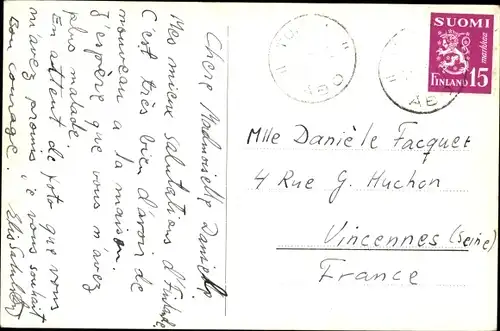 Chère Madmoiselle Danielle
Mes mieux salutations d'Finlande
C'est très bien d'avoir de
nouveau a la maison.
J'espère que vous m'avez
plus malade.
En attent de foto que vous
m'avez promis, je vous souhait
bon courage.
ÅBO
SUOMI
markkaa
FINLAND 15
ÅBO
Mlle Danièle Facquet
4 Rue G. Huchon
Vincennes (Seine)
France